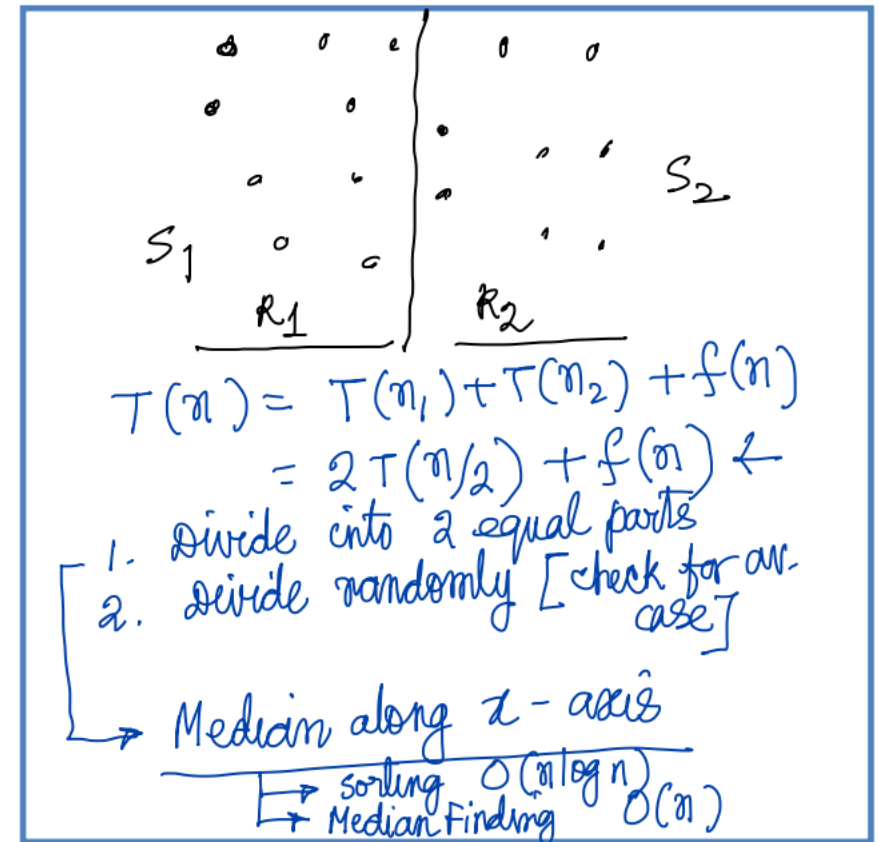 S1
S2
R1
R2
T(n) = T(n₁) + T(n₂) + f(n)
= 2T(n/2) + f(n) ←
1. Divide into 2 equal parts
2. Deivide randomly [check for av.
case]
→ Median along x-axis
→ Sorting O(n log n)
→ Median Finding O(n)